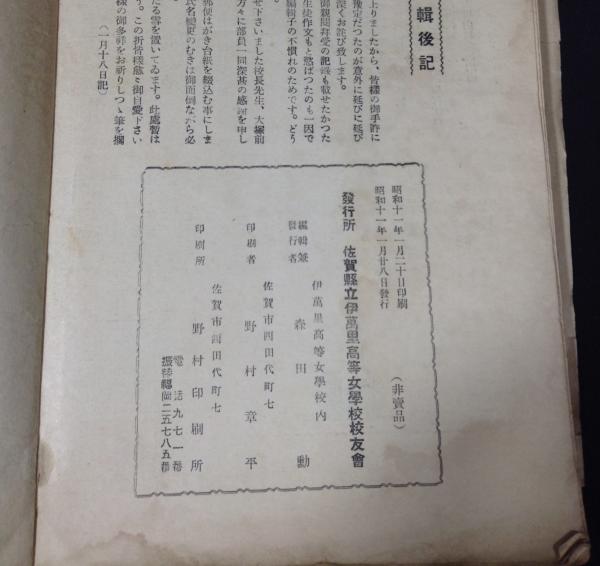 輯後記
上りましたから、皆様の御手許に
豫定だつたのが意外に延びに延び
深くお詫び致します。
御親閲拜受の記録も載せたかつた
生徒作文もと慾ばつたのも一因で
編輯子の不慣れのためです。どう
せ下さいました校長先生、大塚前
方々に部員一同深甚の感謝を申し
郵便はがき台紙を綴込む事にしま
氏名變更のむきは御面倒ながら必
たる雪を置いてゐます。此處暫は
う。この折皆樣益々御自愛下さい
樣の御多祥をお祈りしつゝ筆を擱
(一月十八日記)
昭和十一年一月二十日印刷
昭和十一年一月廿八日發行
(非賣品)
發行所 佐賀縣立伊萬里高等女學校校友會
伊萬里高等女學校内
編輯兼發行者 森田勳
佐賀市西田代町七
印刷者 野村章平
佐賀市西田代町七
印刷所 野村印刷所
電話九七一番
振替福岡二五七八五番